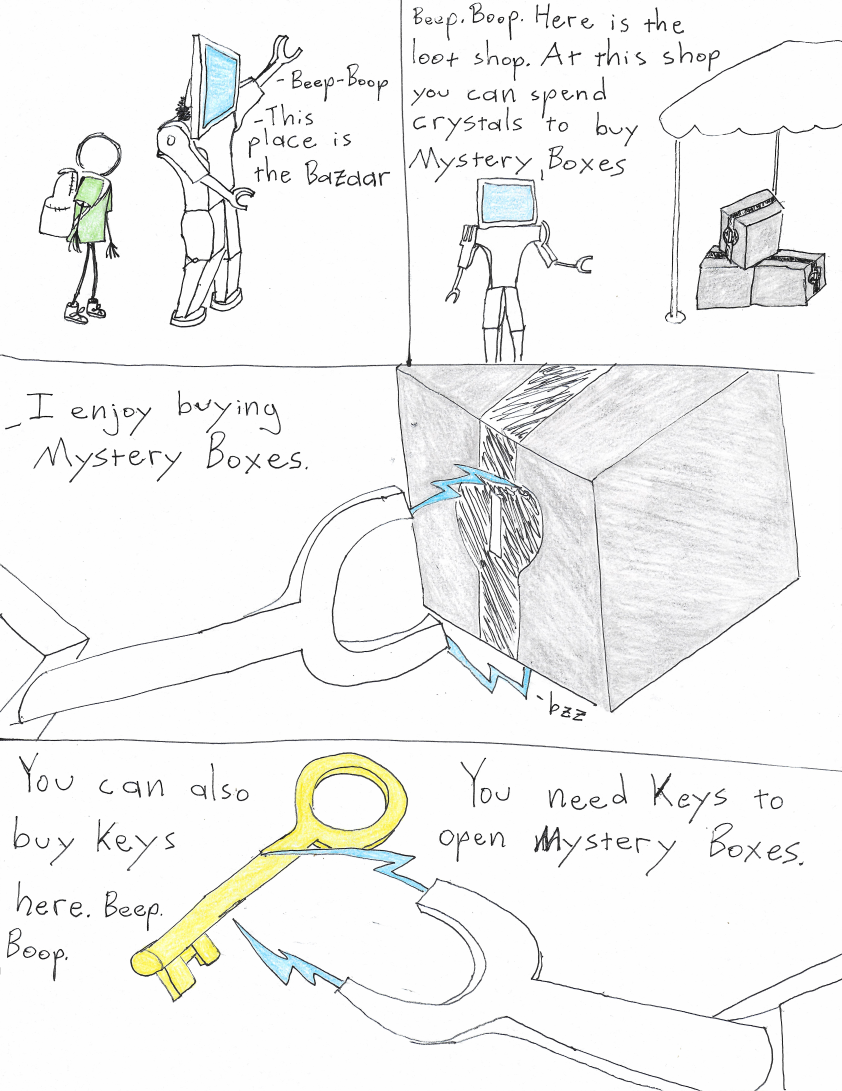 - Beep-Boop
- This
place is
the Bazaar
Beep. Boop. Here is the
loot shop. At this shop
you can spend
crystals to buy
Mystery Boxes
- I enjoy buying
Mystery Boxes.
- bzz
You can also
buy Keys
here. Beep.
Boop.
You need Keys to
open Mystery Boxes.